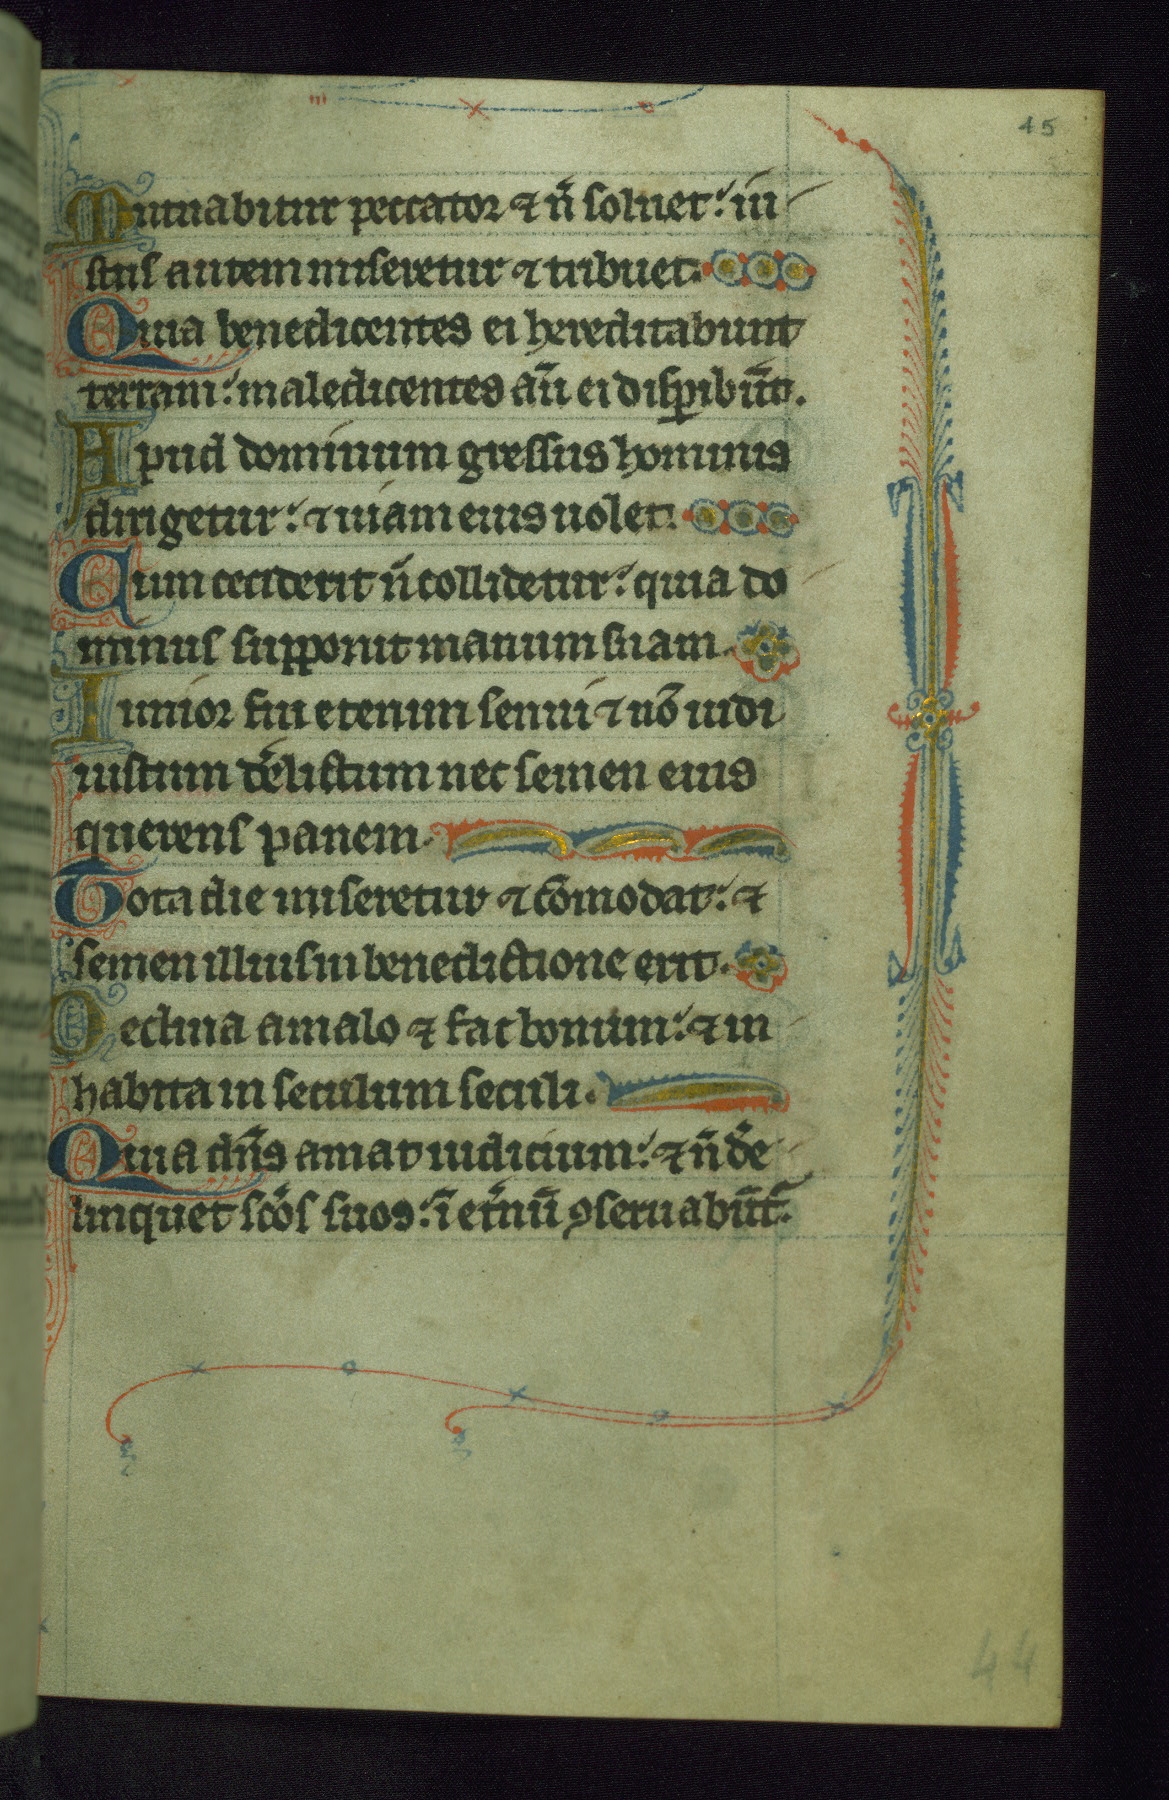 45
Mutuabitur peccator ⁊ n̄ soluet: iu
stus autem miseretur ⁊ tribuet.
Quia benedicentes ei hereditabunt
terram: maledicentes aū ei disꝑibūt.
Apud dominum gressus hominis
dirigetur: ⁊ uiam eius uolet.
Cum ceciderit n̄ collidetur: quia do
minus supponit manum suam.
Iunior fui etenim senui ⁊ nō uidi
iustum dėlictum nec semen eius
querens panem.
Tota die miseretur ⁊ cōmodat: ⁊
semen illius in benedictione erit.
Declina a malo ⁊ fac bonum: ⁊ in
habita in seculum seculi.
Quia dn̄s amat iudicium: ⁊ n̄ de
linquet sc̄os suos: ī et̄nū ꝯseruabūt᷑.
44